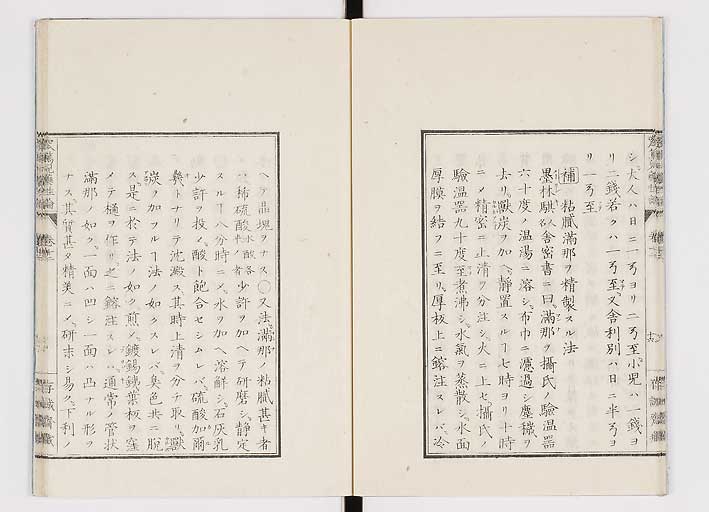 シ、大人ハ日ニ一弓ヨリ二弓至、小児ハ一銭ヨ
リ二銭若クハ一弓至、又舎利別ハ日ニ半弓ヨ
リ一弓至
補 粘膩満那ヲ精製スル法
墨林騏舎密書ニ曰、満那ヲ攝氏ノ驗温器
六十度ノ温湯ニ溶シ、布巾ニ濾過シ塵穢ヲ
去リ、獸炭ヲ加ヘ、靜置スルヿ七時ヨリ十時
ニメ精密ニ上清ヲ分注シ、火ニ上セ、攝氏ノ
驗温器九十度至煮沸シ、水氣ヲ蒸散シ、水面
厚膜ヲ結フニ至リ、厚板上ニ鎔注スレバ、冷
ヘテ晶塊ヲナス〇又法、満那ノ粘膩甚キ者
ハ、稀硫酸 少許ヲ加ヘテ研磨シ、靜定
スルヿ八分時ニメ、水ヲ加ヘ溶解シ、石灰乳
少許ヲ投メ、酸ト飽合セシムレバ、硫酸加爾
幾トナリテ沈澱ス、其時上清ヲ分チ取リ、獸
炭ヲ加フルヿ法ノ如クスレバ、臭色共ニ脱
ス、是ニ於テ法ノ如ク煎シ、鍍錫銕葉板ヲ窪
メテ樋ヲ作リ、之ニ鎔注スレハ、通常ノ管状
満那ノ如ク、一面ハ凹シ一面ハ凸ナル形ヲ
ナス、其質甚タ精美ニメ、研末シ易ク、下利ノ